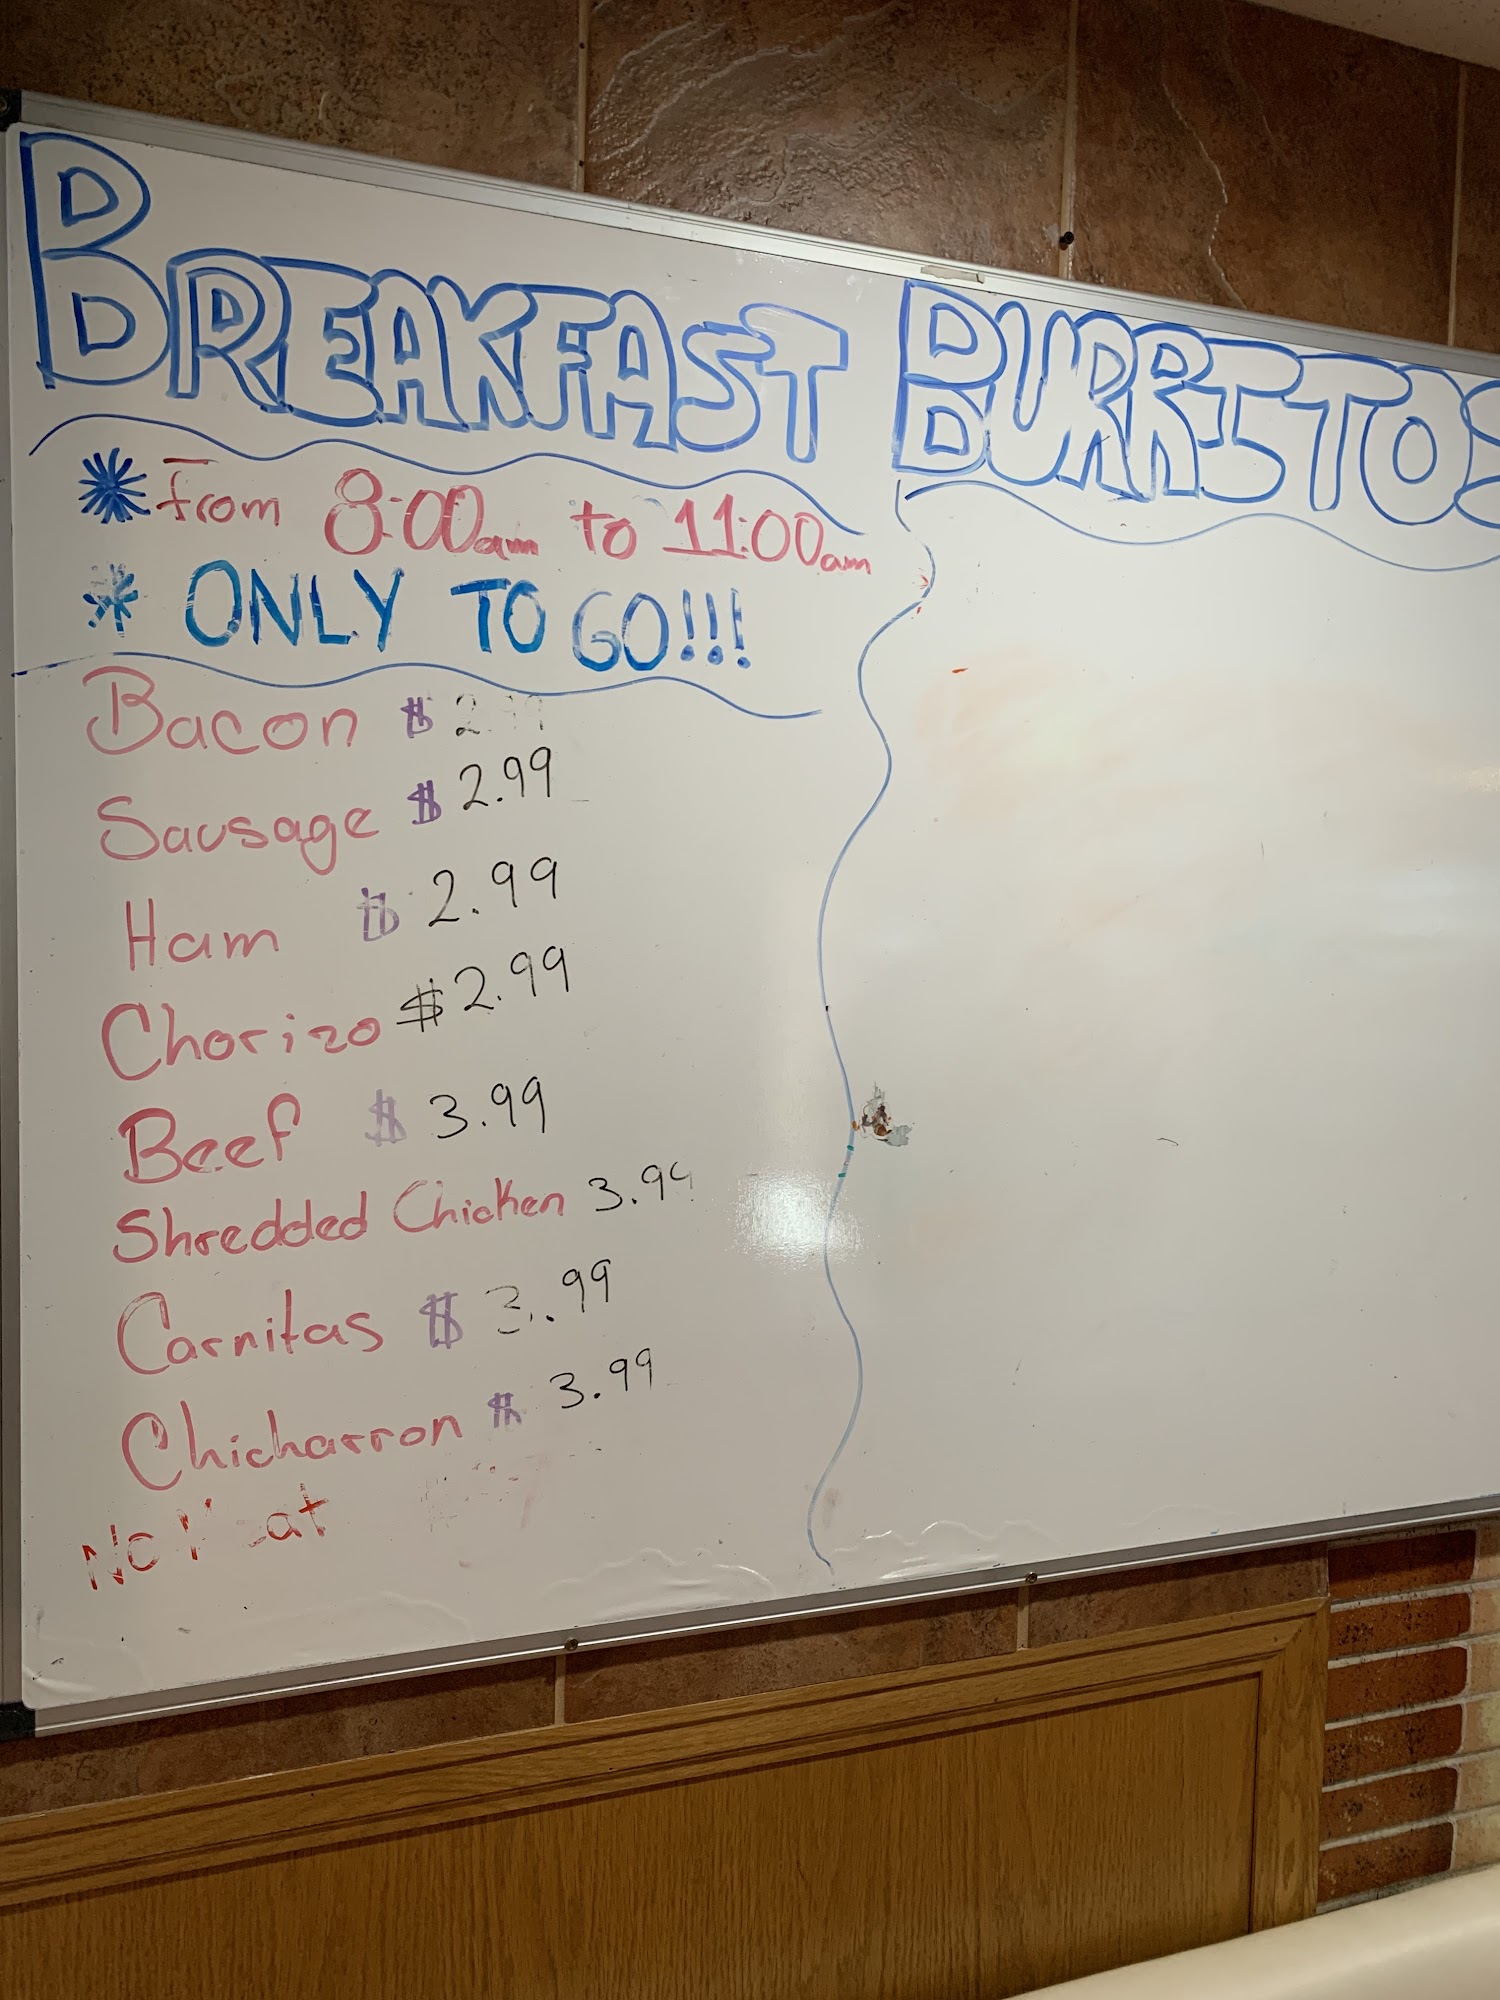 BREAKFAST BURRITOS
* From 8:00am to 11:00am
* ONLY TO GO!!!
Bacon $ 2.99
Sausage $ 2.99
Ham $ 2.99
Chorizo $2.99
Beef $ 3.99
Shredded Chicken 3.99
Carnitas $ 3.99
Chicharron $ 3.99
No Meat